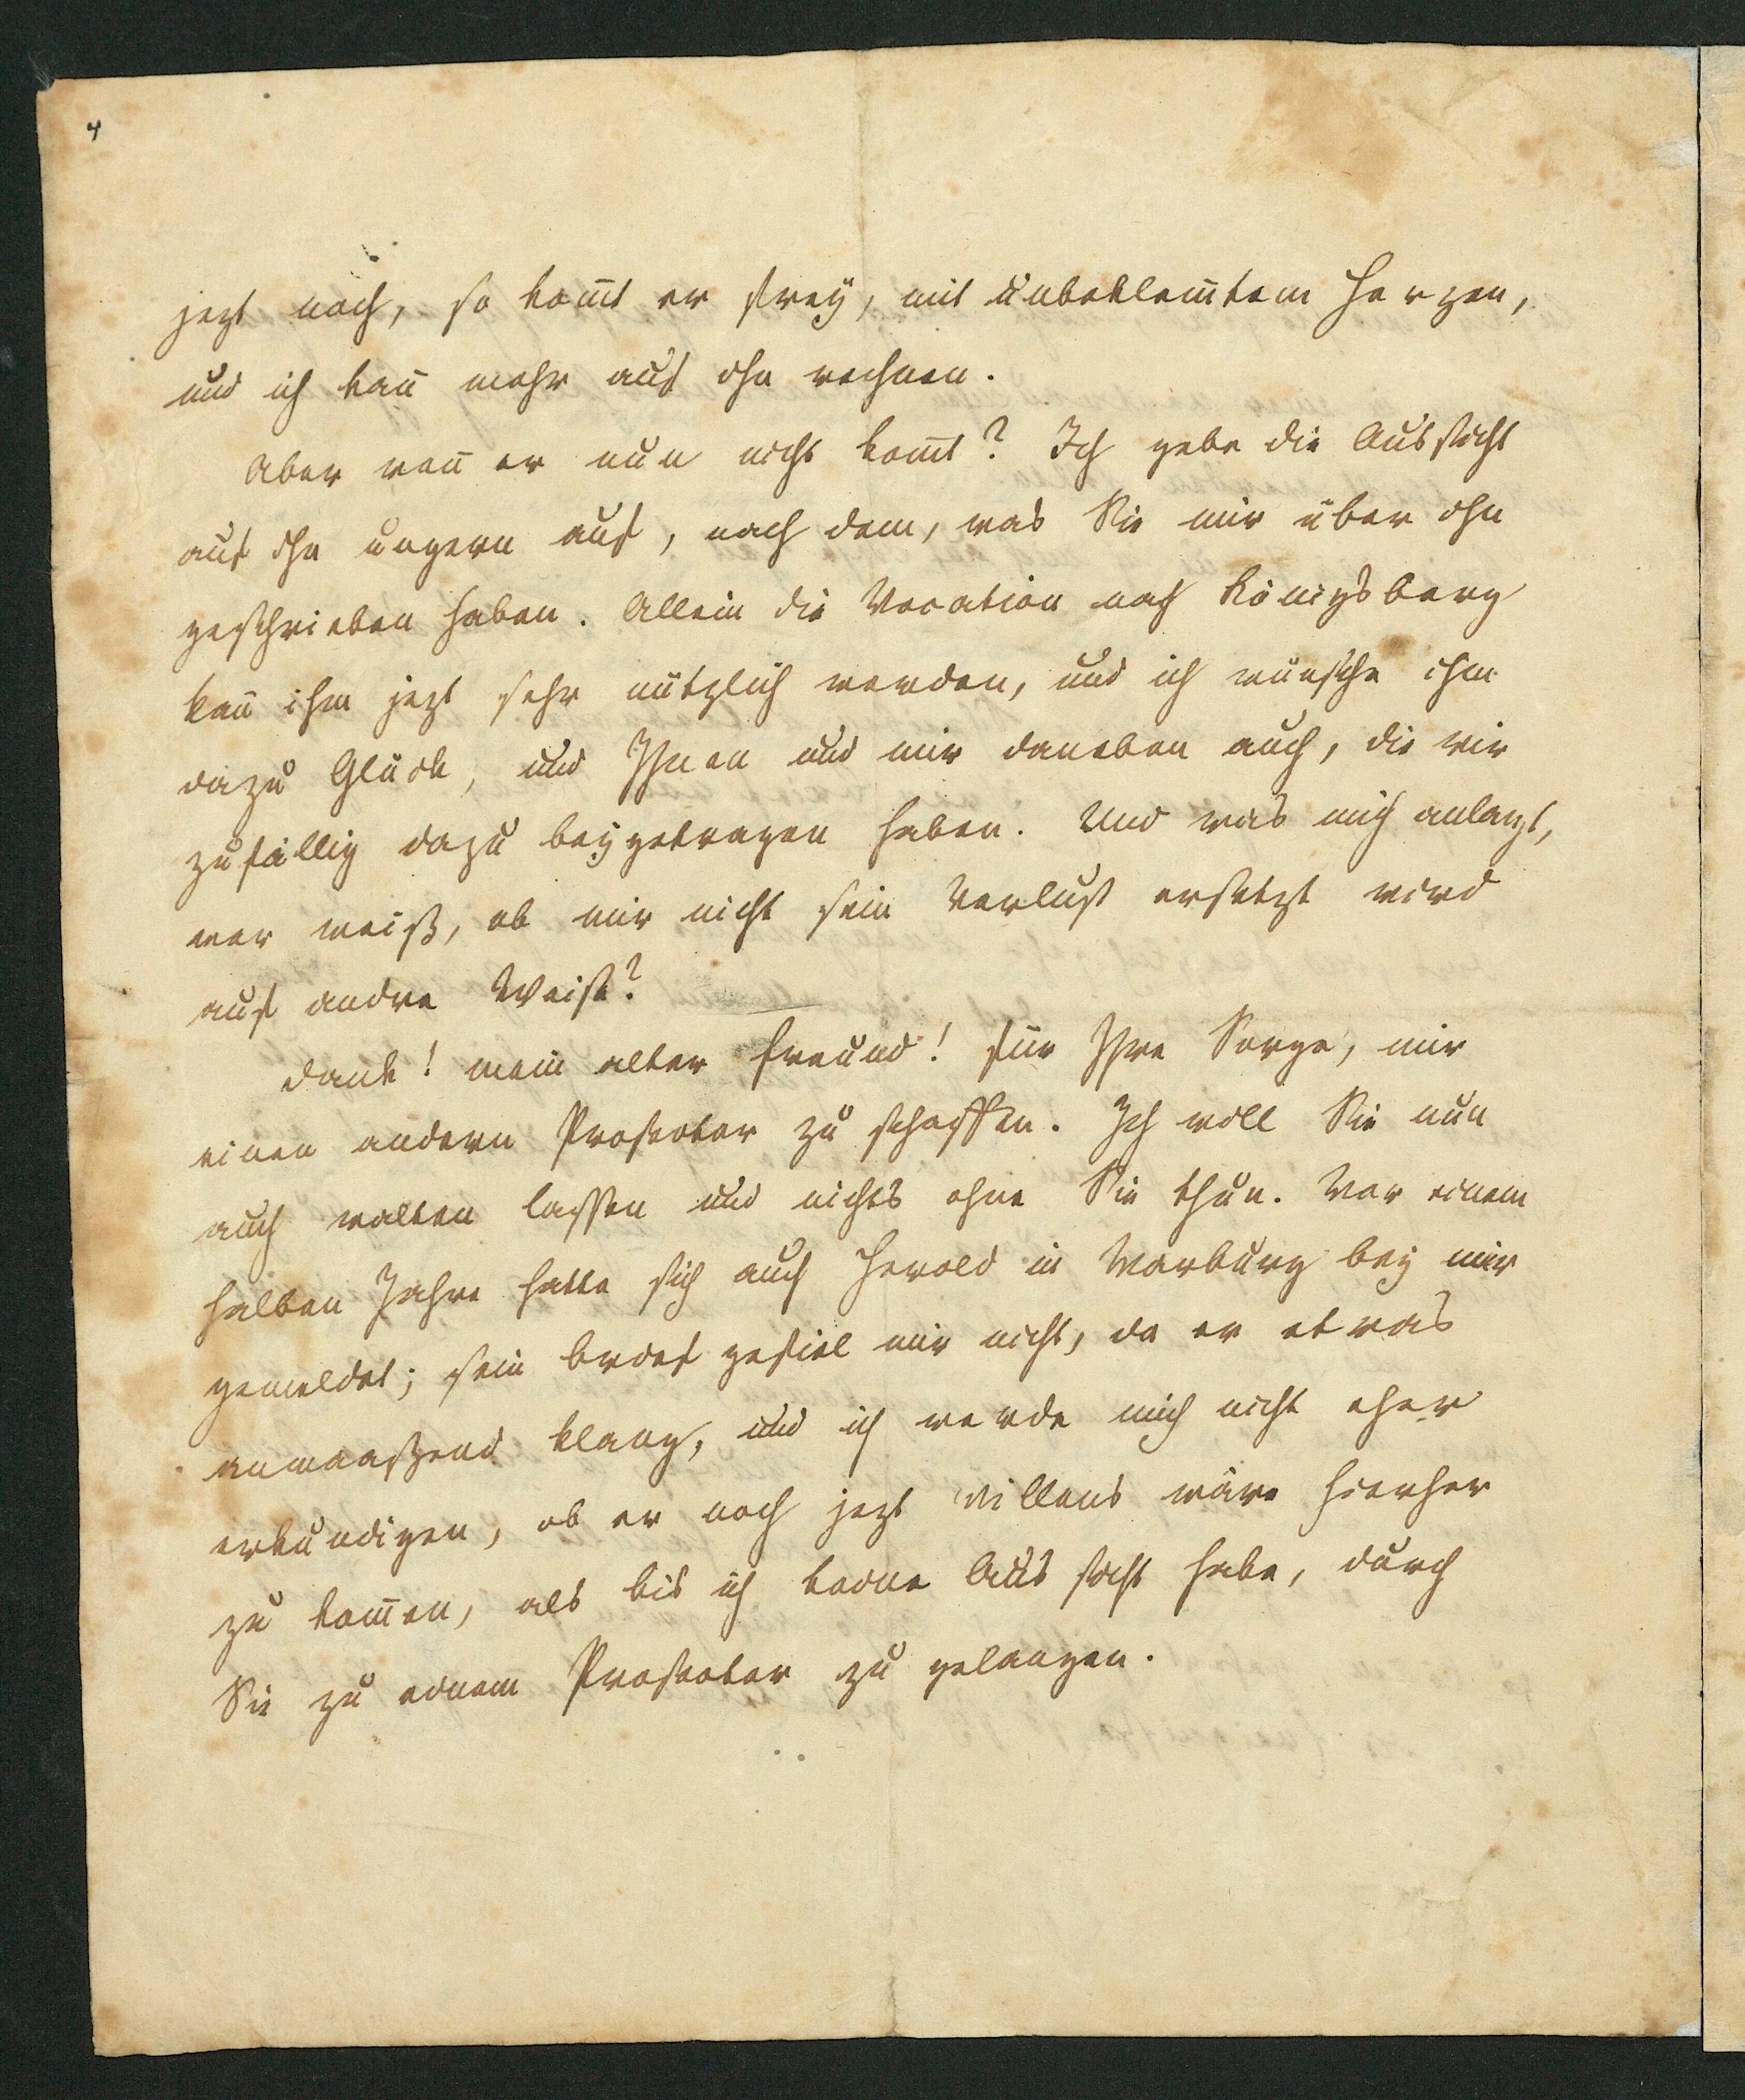 4
jezt noch, so kom̅t er frey, mit unbeklem̅tem Herzen,
und ich kan̅ mehr auf ihn rechnen.
Aber wen̅ er nun nicht kom̅t? Ich gebe die Aussicht
auf ihn ungern auf, nach dem, was Sie mir über ihn
geschrieben haben. Allein die Vocation nach Königsberg
kan̅ ihm jezt sehr nützlich werden, und ich wünsche ihm
dazu Glück, und Ihnen und mir daneben auch, die wir
zufällig dazu beygetragen haben. Und was mich anlangt,
wer weiß, ob mir nicht sein Verlust ersetzt wird
auf andre Weise?
Dank! mein alter Freund! für Ihre Sorge, mir
einen andern Prosector zu schaffen. Ich will Sie nun
auch walten lassen und nichts ohne Sie thun. Vor einem
halben Jahre hatte sich auch Herold in Marburg bey mir
gemeldet; sein Brief gefiel mir nicht, da er etwas
anmaaßend klang, und ich werde mich nicht eher
erkundigen, ob er noch jezt willens wäre hierher
zu kom̅en, als bis ich keine Aussicht habe, durch
Sie zu einem Prosector zu gelangen.